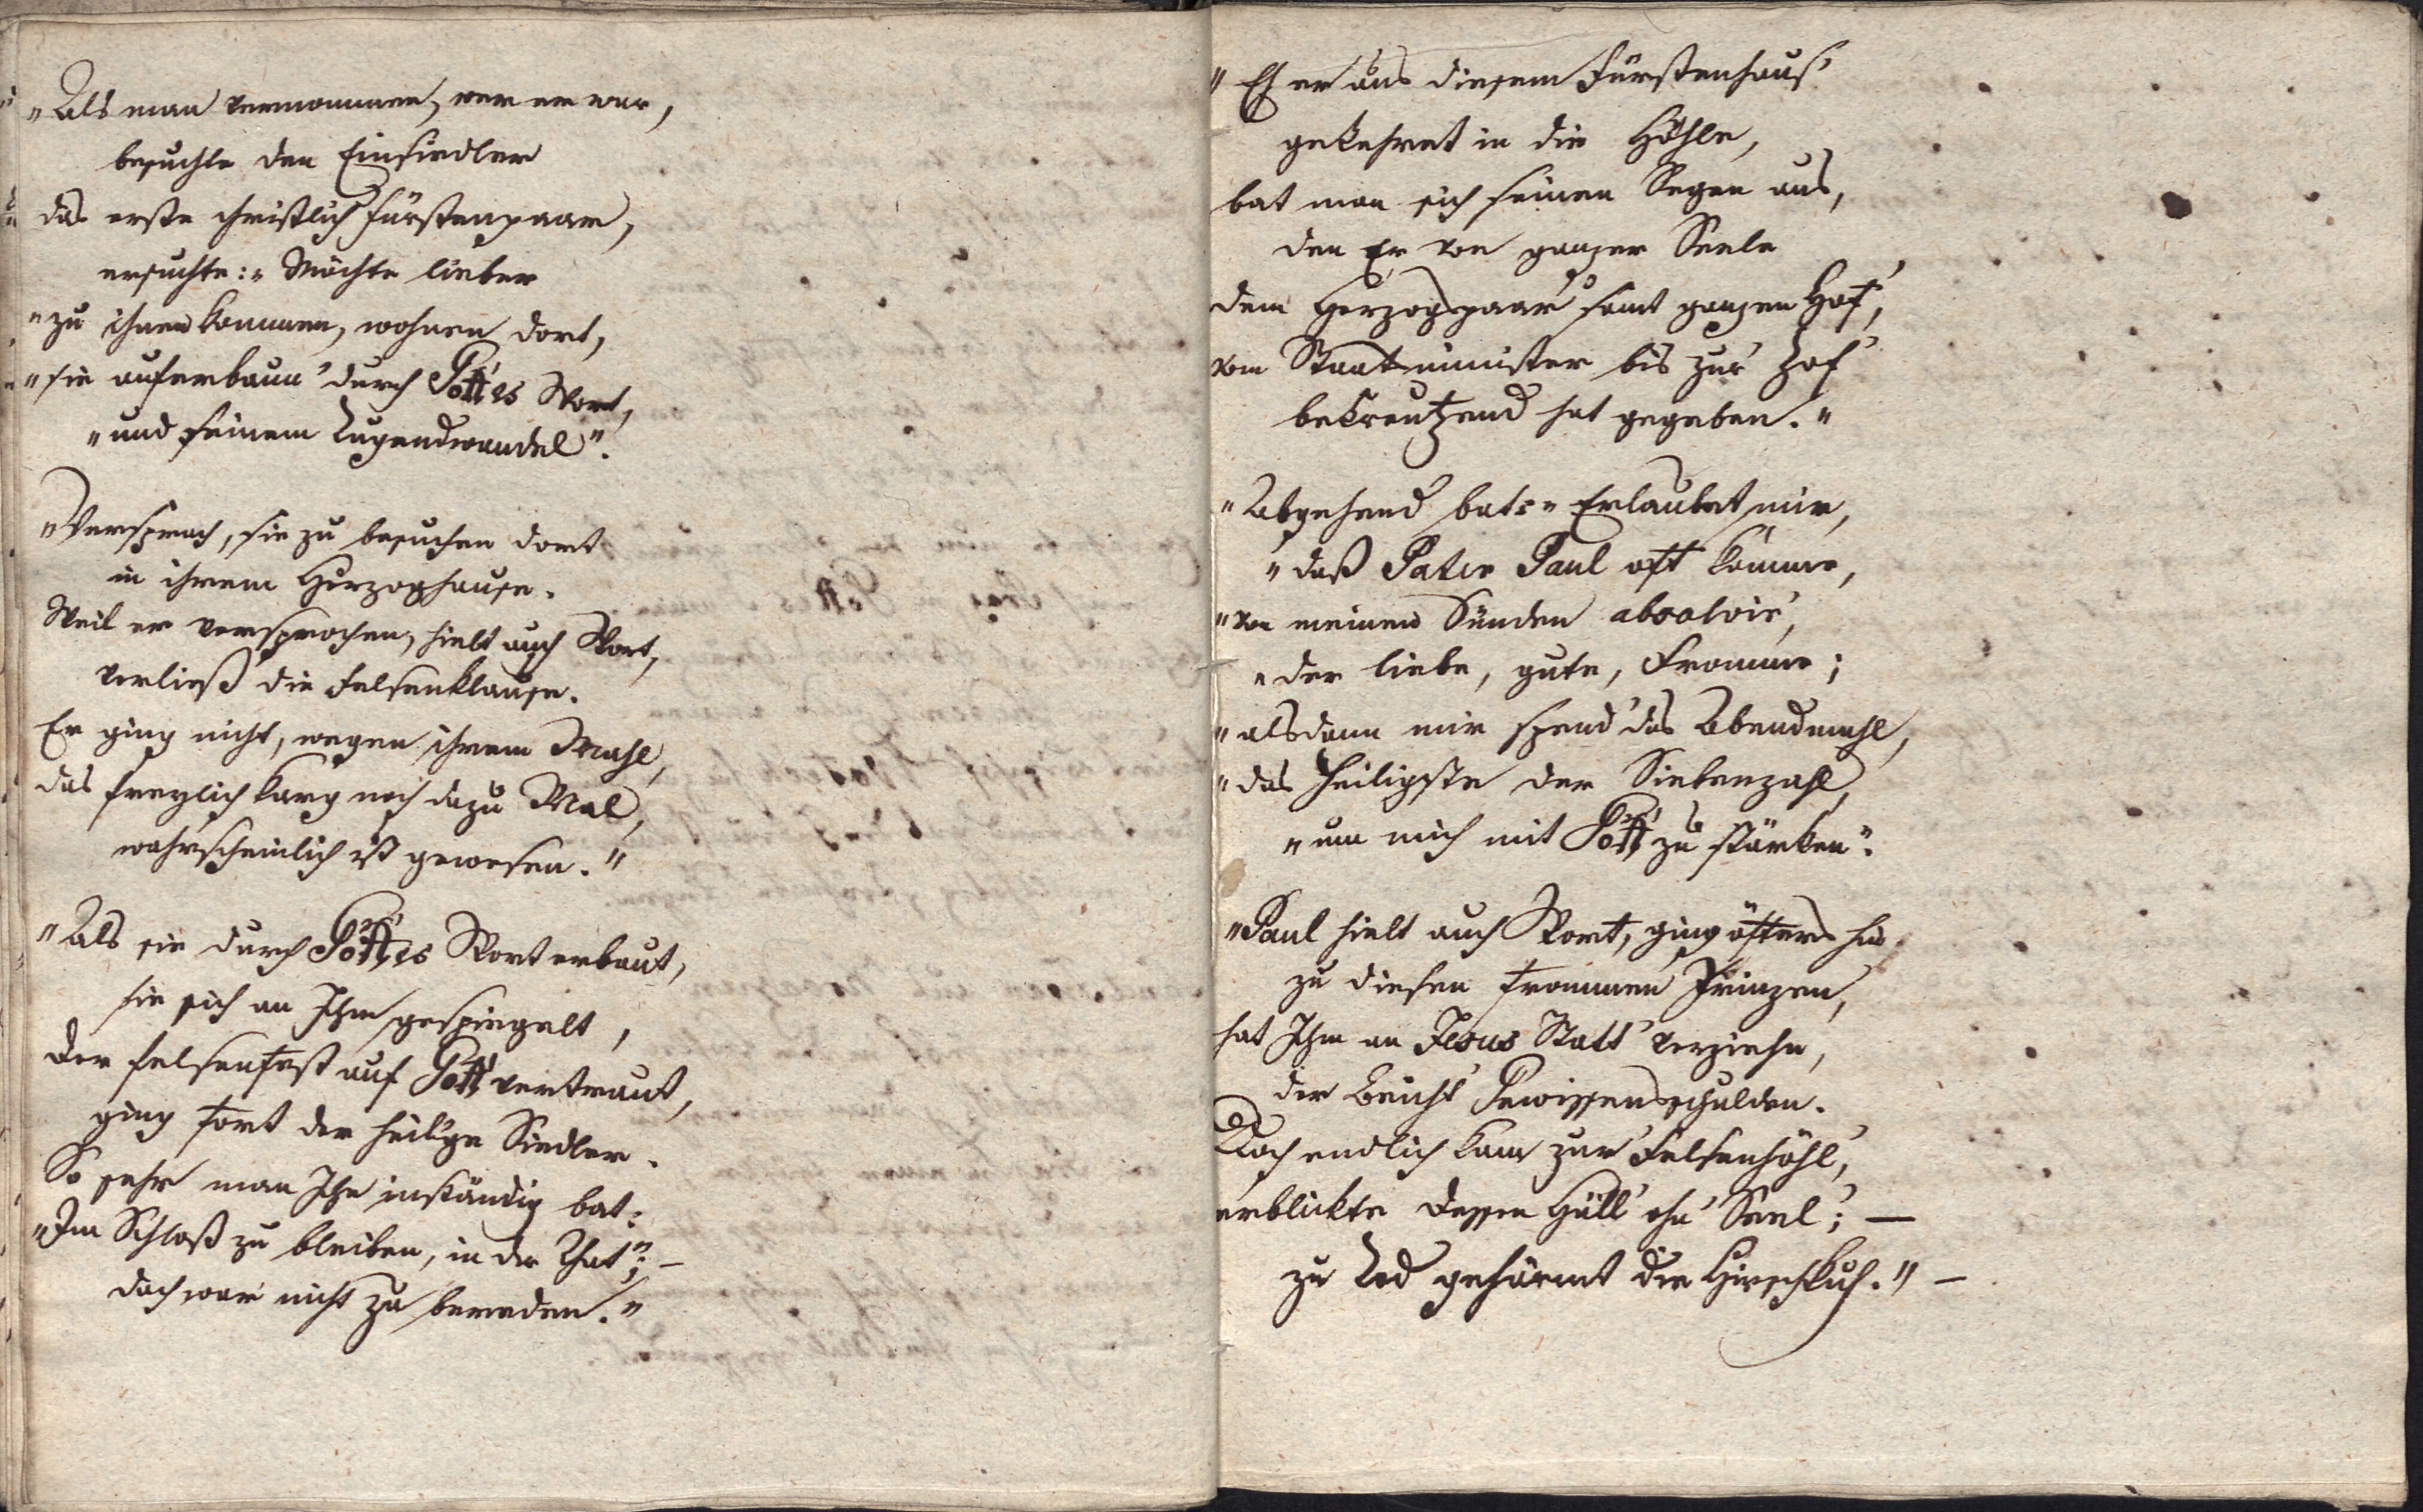 „Als man vernommen, wer er war,
besuchte den Einsiedler
das erste christlich Fürstenpaar,
ersuchte: „Möchte lieber
„zu ihnen kommen, wohnen dort,
„sie auferbaun' durch Gottes Wort,
„und seinem Tugendwandel".
„Versprach, sie zu besuchen dort
in ihrem Herzoghause.
Weil er versprochen, hielt auch Wort,
verließ die Felsenklause.
Er ging nicht, wegen ihrem Mahl,
das freylich karg noch dazu Mal,
wahrscheinlich ist gewesen."
„Als sie durch Gottes Wort erbaut,
sie sich an Ihm gespiegelt,
der felsenfest auf Gott vertraut,
ging fort der heilige Siedler.
So sehr man Ihn inständig bat:
„Im Schloß zu bleiben, in der That"; –
doch war nicht zu bereden."
„Eh er aus diesem Fürstenhaus'
gekehret in die Höhle,
bat man sich seinen Segen aus,
den Er von ganzer Seele
dem Herzogspaar samt ganzen Hof',
vom Staatsminister bis zur Zof'
bekreutzend hat gegeben."
„Abgehend bat: „Erlaubet mir,
„daß Pater Paul oft komme,
„von meinen Sünden absolvir',
„der liebe, gute, Fromme;
„alsdann mir spend' das Abendmahl,
„das heiligste der Siebenzahl,
„um mich mit Gott zu stärken".
„Paul hielt auch Wort, ging öfters hin
zu diesen frommen Prinzen,
hat Ihm an Jesus Statt verziehn,
der Beicht' Gewissensschulden.
Doch endlich kam zur Felsenhöhl',
erblickte dessen Hüll' ohn' Seel'; —
zu Tod gehärmt die Hirschkuh." –